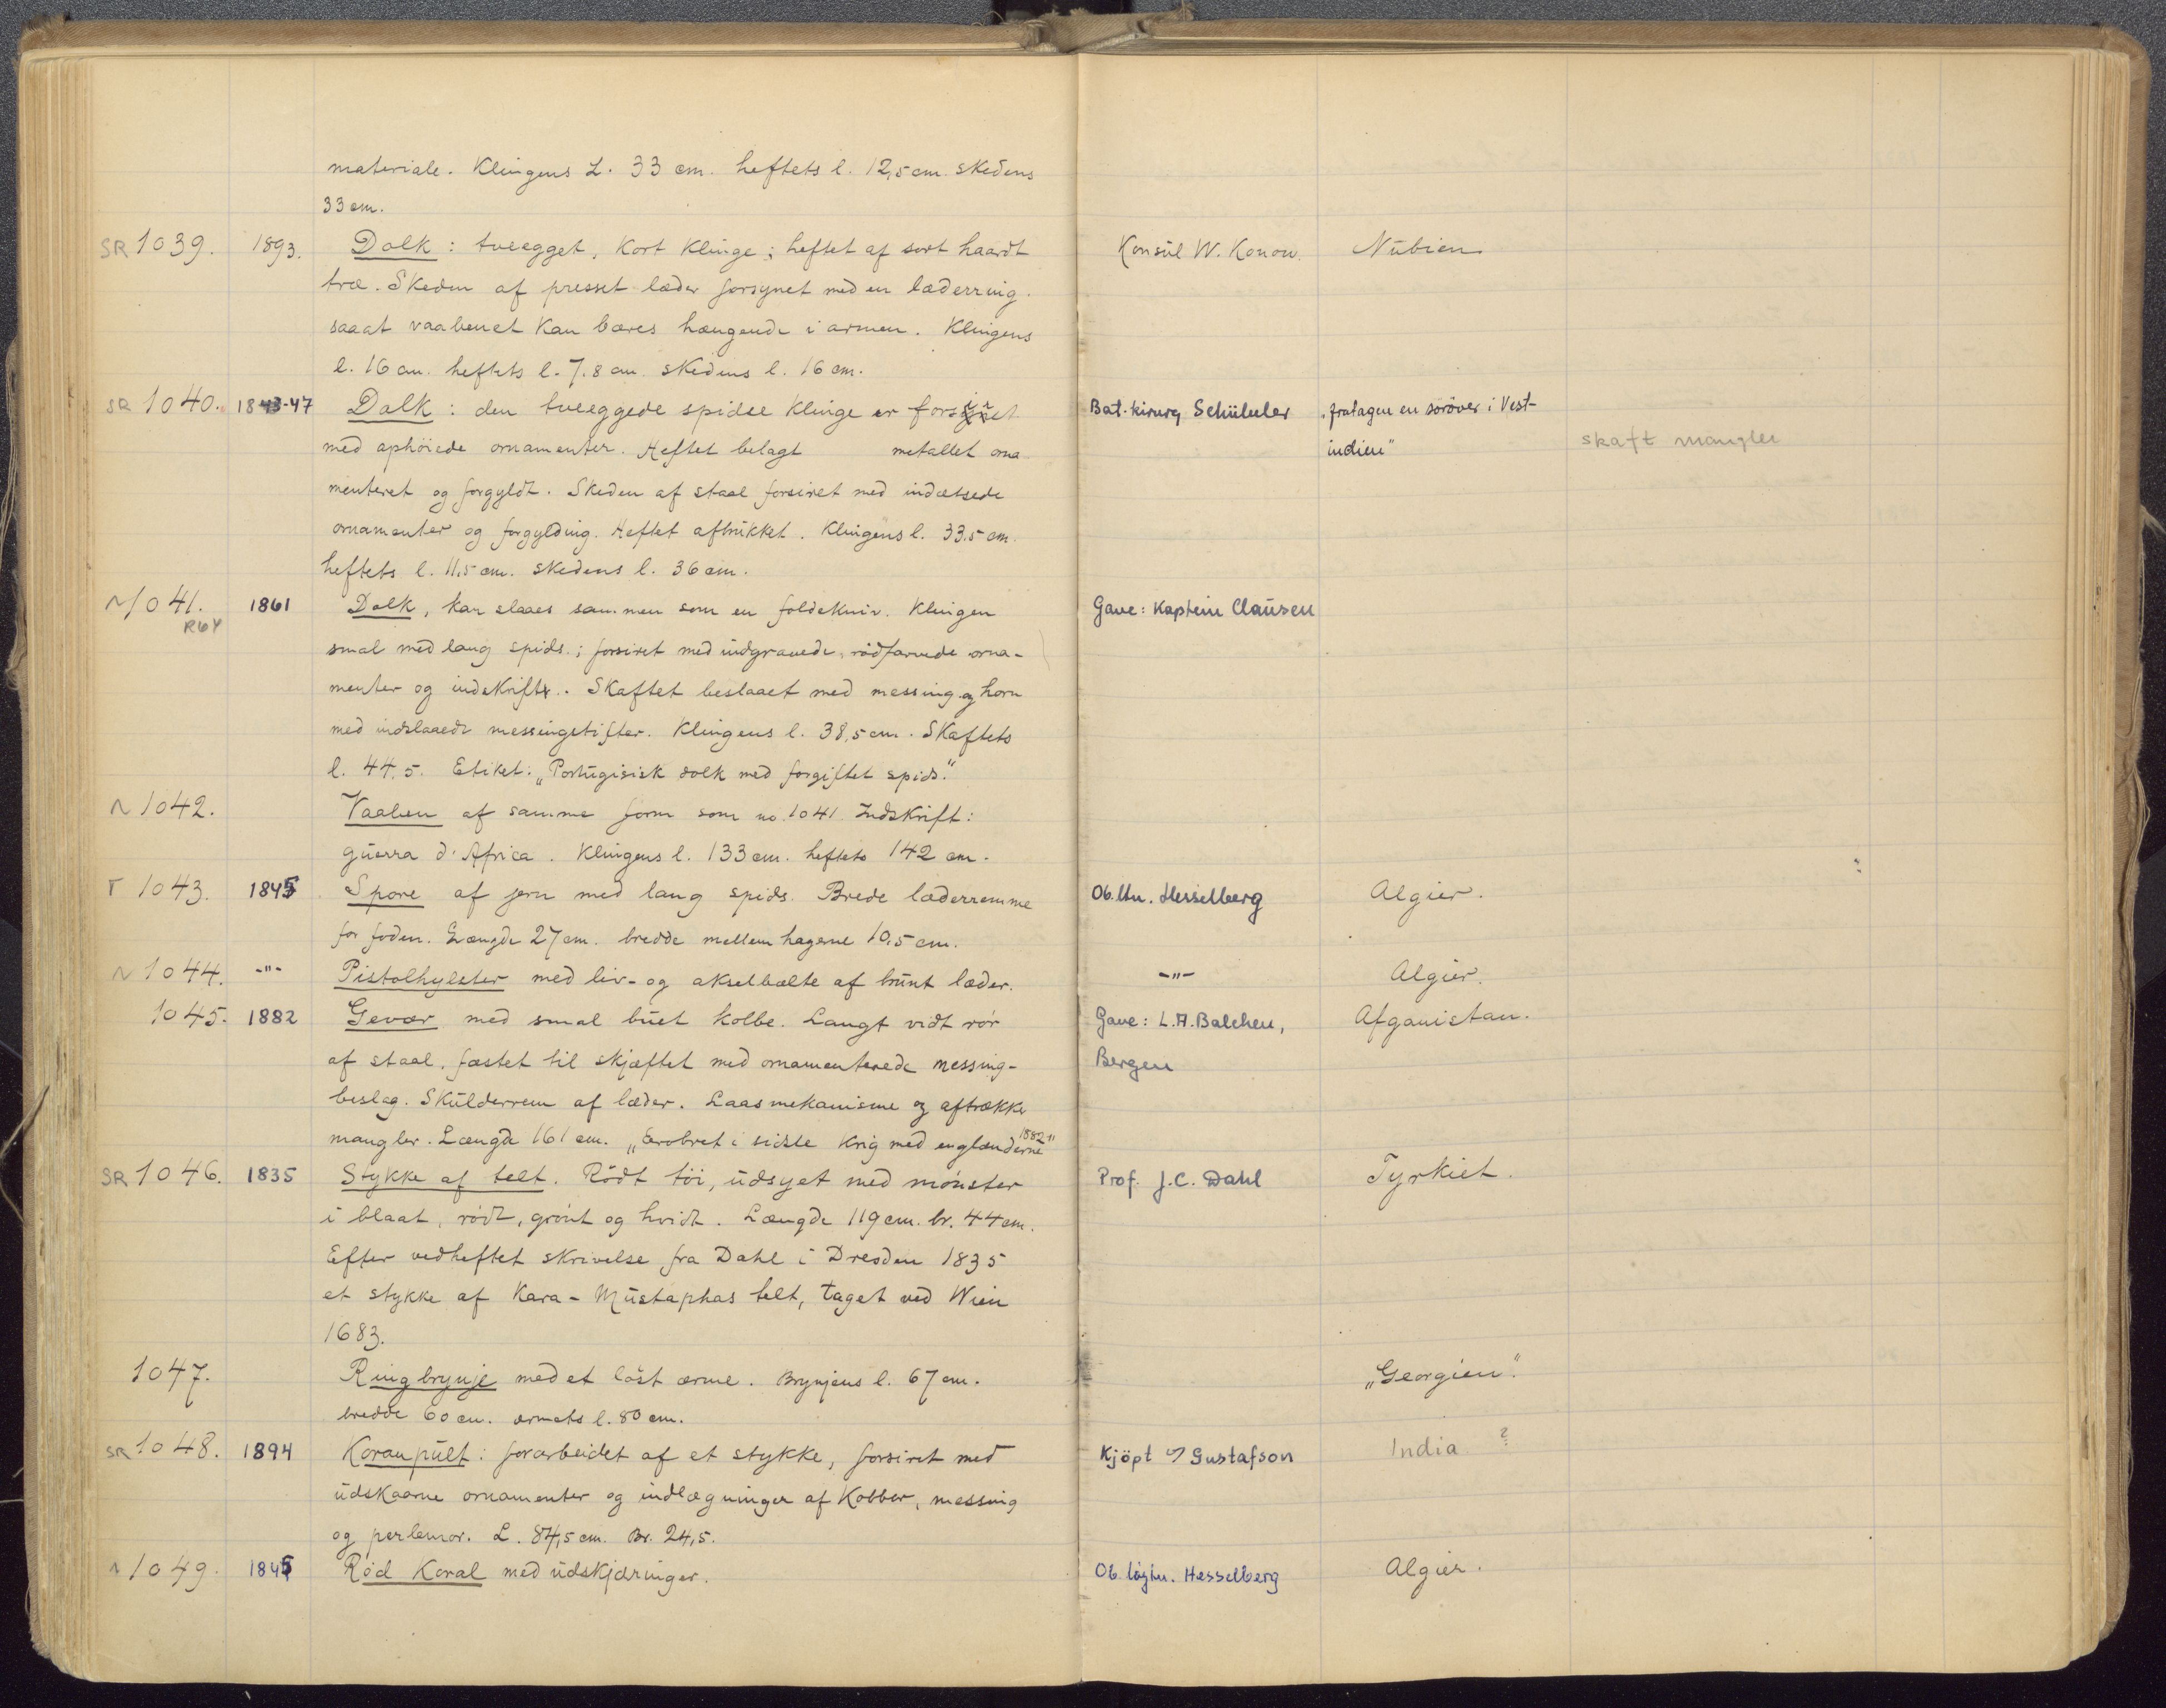 materiale. Klingens L. 33 cm. heftets l. 12,5 cm. skedens
33 cm.
SR 1039. 1893. Dolk : tveegget, kort klinge ; heftet af sort haardt Konsul W. Konow. Nubien
træ. Skeden af presset læder forsynet med en læderring
saaat vaabenet kan bæres hængende i armen. Klingens
l. 16 cm. heftets l. 7.8 cm. skedens l. 16 cm.
SR 1040. 1843-47 Dolk : den tveeggede spidse klinge er forsiret Bat. kirurg „fratagen en söröver i Vest-
med ophöiede ornamenter. Heftet belagt metallet orna- indien" skaft mangler
menteret og forgyldt. Skeden af staal forsiret med indætsede
ornamenter og forgylding. Heftet aftrukket. Klingens l. 33,5 cm.
heftets l. 11,5 cm. skedens l. 36 cm.
N 1041. 1861 Dolk, kan slaaes sammen som en foldekniv. Klingen Gave: Kaptein Clausen
smal med lang spids ; forsiret med indgravede, rödfarvede orna-
menter og indskrift. Skaftet beslaaet med messing og horn
med indslaaede messingstifter. Klingens l. 38,5 cm. Skaftets
l. 44,5. Etiket: „Portugisisk dolk med forgiftet spids."
N 1042. Vaaben af samme form som no. 1041. Indskrift:
guerra d'Africa. Klingens l. 133 cm. heftets 142 cm.
T 1043. 1845 Spore af jern med lang spids. Brede læderremme Hesselberg Algier.
for foden. Længde 27 cm. bredde mellem hagerne 10,5 cm.
N 1044. -"- Pistolhylster med liv- og akselbælte af brunt læder. -"- Algier.
1045. 1882 Gevær med smal buet kolbe. Langt vidt rör Gave: L.A. Balchen, Afganistan.
af staal, fæstet til skjæftet med ornamenterede messing- Bergen
beslag. Skulderrem af læder. Laasmekanisme og aftrække
mangler. Længde 161 cm. „Erobret i sidste krig med englænderne 1882"
SR 1046. 1835 Stykke af telt. Rödt töi, udsyet med mönster Prof. J.C. Dahl Tyrkiet.
i blaat, rödt, grönt og hvidt. Længde 119 cm. br. 44 cm.
Efter vedheftet skrivelse fra Dahl i Dresden 1835
et stykke af Kara-Mustaphas telt, taget ved Wien
1683.
1047. Ringbrynje med et löst ærme. Brynjens l. 67 cm. „Georgien".
bredde 60 cm. ærmets l. 80 cm.
SR 1048. 1894 Koranpult : forarbeidet af et stykke, forsiret med Kjöpt Gustafson India ?
udskaarne ornamenter og indlægninger af kobber, messing
og perlemor. L. 84,5 cm. Br. 24,5.
N 1049. 1845 Röd Koral med udskjæringer. Ob. löjtn. Hesselberg Algier.